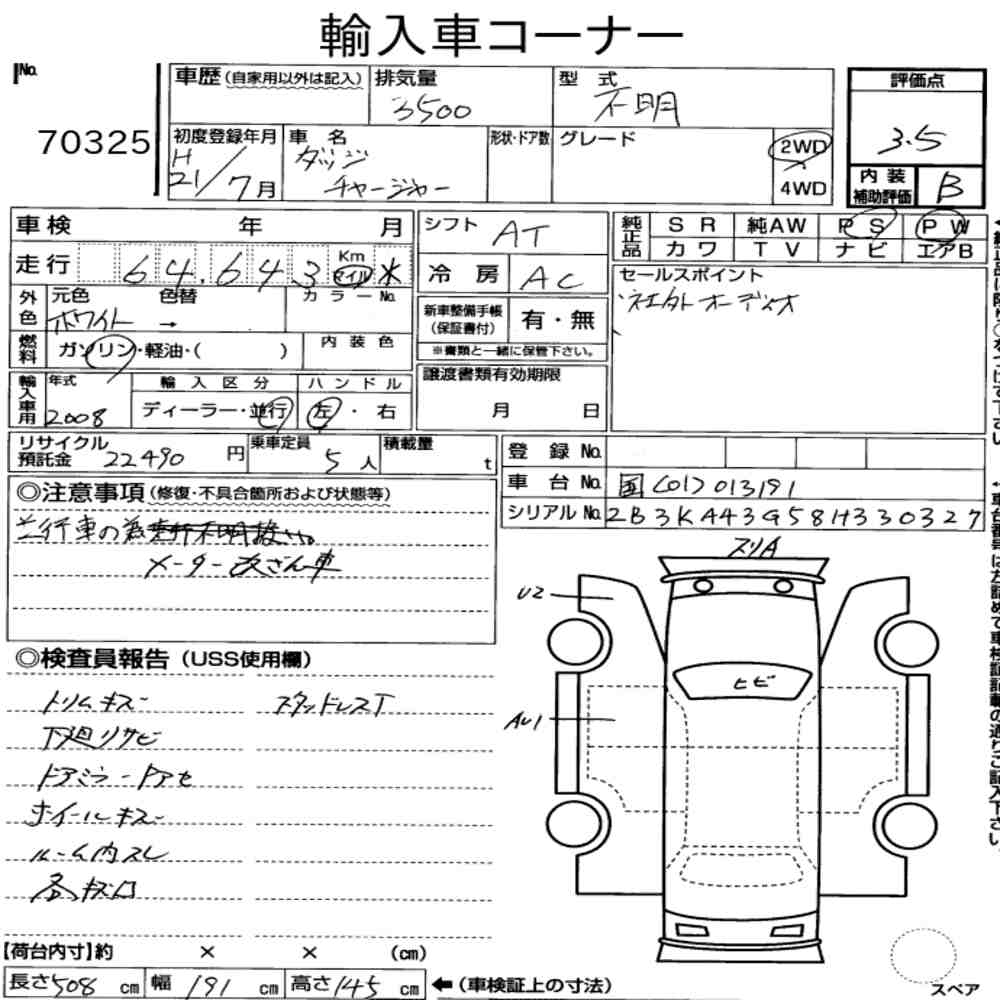 輸入車コーナー
No.
70325
車歴(自家用以外は記入)
排気量
3500
型 式
不明
評価点
3.5
初度登録年月
H
21/7月
車 名
ダッジ
チャージャー
形状・ドア数
グレード
2WD
4WD
内装
補助評価
B
車検 年 月
シフト
AT
純正品
SR
純AW
PS
PW
カワ
TV
ナビ
エアB
走行
64.643
Km
マイル
冷房
AC
セールスポイント
社外オーディオ
外色
元色
ホワイト
色替
→
カラーNo.
新車整備手帳
(保証書付)
有・無
※書類と一緒に保管下さい。
燃料
ガソリン・軽油・( )
内装色
輸入車用
年式
2008
輸入区分
ディーラー・並行
ハンドル
左・右
譲渡書類有効期限
月 日
リサイクル
預託金
22490円
乗車定員
5人
積載量
t
登録No.
車台No.
国[01]013191
シリアルNo.
2B3KA43G58H330327
◎注意事項(修復・不具合箇所および状態等)
並行車の為
メーター改ざん車
◎検査員報告(USS使用欄)
トリムキズ
スタッドレスT
下廻りサビ
ドアミラードアセ
ホイールキズ
ルーム内スレ
スリA
U2
ヒビ
AU1
【荷台内寸】約 × × (cm)
長さ508cm
幅191cm
高さ145cm
←(車検証上の寸法)
スペア